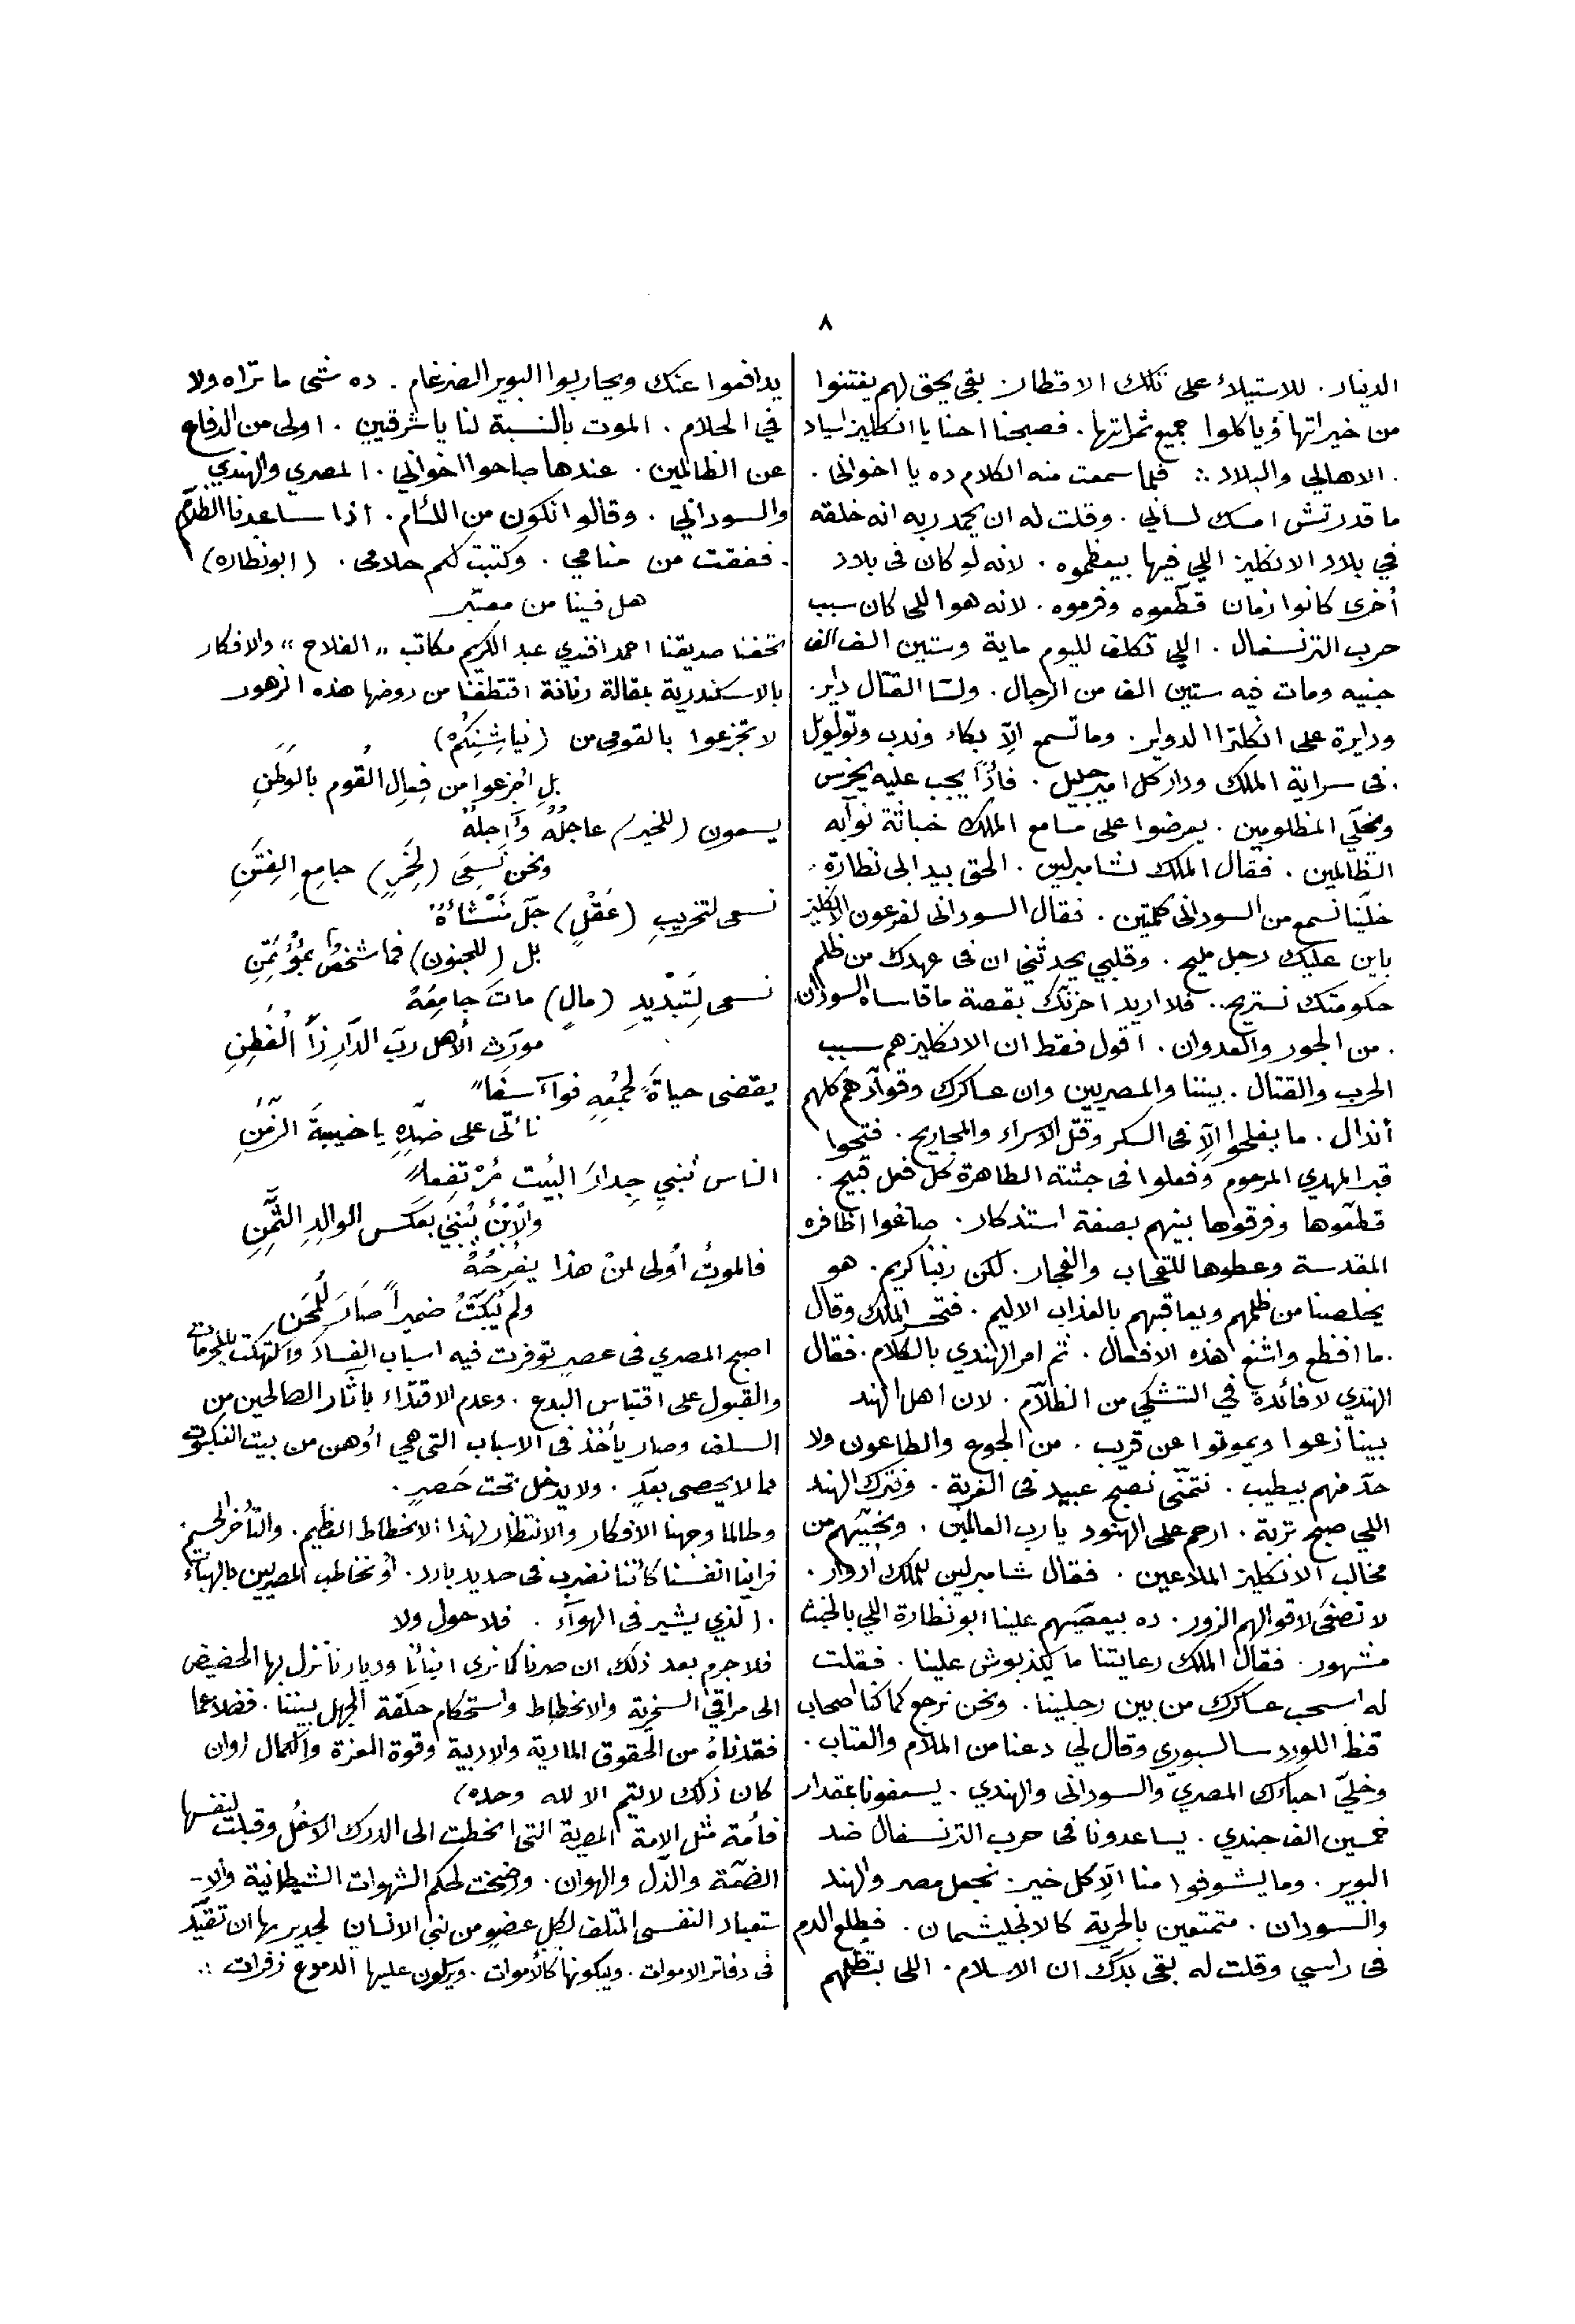 ٨
الدينار. للاستيلاء على تلك الاقطار. بقى يحق لهم يغتنوا
من خيراتها وياكلوا جميع ثمراتها. فصبحنا احنا يا انكليز اسياد
. الاهالي والبلاد ∴ فلما سمعت منه الكلام ده يا اخواني.
ما قدرتش امسك لساني. وقلت له ان يحمد ربه انه خلقه
في بلاد الانكليز اللي فيها بيعظموه. لانه لو كان فى بلاد
أخرى كانوا زمان قطّعوه وفرموه. لانه هو اللى كان سبب
حرب الترنسفال. اللي تكلف لليوم ماية وستين الف الف
جنيه ومات فيه ستين الف من الرجال. ولسّا القتال داير.
ودايرة على انكلترا الدواير. وما تسمع الّا بكاء وندب وتولول
. فى سراية الملك ودار كل امير جليل. فاذًا يجب عليه يخرس
ويخلّي المظلومين. يعرضوا على مسامع الملك خباثة نوآبه
الظالمين. فقال الملك لشامبرلين. الحق بيد ابى نظارة.
خلّينا نسمع من السودانى كلمتين. فقال السودانى لفرعون الانكليز
باين عليك رجل مليح. وقلبي يحدثني ان فى عهدك من ظلم
حكومتك نستريح.. فلا اريد احزنك بقصة ما قاساه السودان
. من الجور والعدوان. اقول فقط ان الانكليز هم سبب
الحرب والقتال. بيننا والمصريين وان عساكرك وقوآدهم كلهم
أنذال. ما يفلحوا الّا فى السكر وقتل الاسراء والمجاريح. فتحوا
قبر المهدي المرحوم وفعلوا فى جثته الطاهرة كل فعل قبيح.
قطّعوها وفرقوها بينهم بصفة استذكار. صاغوا اظافره
المقدسة وعطوها للقحاب والفجار. لكن ربنا كريم. هو
يخلصنا من ظلمهم ويعاقبهم بالعذاب الاليم. فتحسر الملك وقال
. ما افظع واشنع هذه الافعال. ثم امر الهندي بالكلام. فقال
الهندي لا فائدة في التشكي من الظلّام. لان اهل الهند
بينازعوا ويموتوا عن قريب. من الجوع والطاعون ولا
حدّ منهم بيطيب. نتمنّى نصبح عبيد فى الغربة. ونترك الهند
اللي صبح تربة. ارحم على الهنود يا رب العالمين. ونجّيهم من
مخالب الانكليز الملاعين. فقال شامبرلين للملك ادوار.
لا تصغى لاقوالهم الزور. ده بيعصّيهم علينا ابو نظارة اللي بالخبث
مشهور. فقال الملك رعايتنا ما يكذبوش علينا. فقلت
له اسحب عساكرك من بين رجلينا. ونحن نرجع كما كنا اصحاب
فنط اللورد سالسبوري وقال لي دعنا من الملام والعتاب.
وخلّي احباءك المصري والسودانى والهندي. يسعفونا بمقدار
خمسين الف جندي. يساعدونا فى حرب الترنسفال ضد
البوير. وما يشوفوا منا الّا كل خير. نجعل مصر والهند
والسودان. متمتعين بالحرية كالانجليشمان. فطلع الدم
فى راسي وقلت له بقى بدك ان الاسلام. اللى بتظلمهم
يدافعوا عنك ويحاربوا البوير الضرغام. ده شئ ما تراه ولا
في الحلام. الموت بالنسبة لنا يا شرقيين. اولى من الدفاع
عن الظالمين. عندها صاحوا اخواني. المصري والهندي
والسوداني. وقالوا نكون من اللئام. اذا ساعدنا الظلّام
. ففقت من منامي. وكتبت لكم حلامى. (ابو نظاره)
هل فينا من معتبر
اتحفنا صديقنا احمد افندي عبد الكريم مكاتب "الفلاح" والافكار
بالاسكندرية بمقالة رنانة اقتطفنا من روضها هذه الزهور
لا تجزعوا يا لقومى من (نياشِنِكُمْ)
بلِ اجْزعوا من فِعالِ القُومِ بالوَطَنِ
يسعون (للخير) عاجِلُهُ وآجِلهُ
ونحن نَسعَى (لِخَمرٍ) جامِعِ الفِتَنِ
نسعى لتخريبِ (عَقْلٍ) جَلّ مَنْشَأهُ
بل (للجنون) فما شخصٌ بمُؤتَمَنِ
نسعى لِتَبْديدِ (مالٍ) ماتَ جامِعُهُ
مورّث الأهل ربّ الدّارِ ذا الفُطِنِ
يقضى حياةً لجَمْعِهِ فوآ أسفاً
نأتى على ضدّهِ يا خيبةَ الزّمَنِ
الناس تُبنيِ جِدارَ البيْت مُرْتفِعاً
والْإبْنُ يُبني بعَكس الوالِدِ الثّمِنِ
فالموتُ أولى لمنْ هذا يفْرِحُهُ
ولم يُبكّتُ ضميراً صَارَ لِلْمحَنِ
اصبح المصري فى عصرٍ توفرت فيه اسباب الفساد والتهتك للمحرمات
والقبول على اقتباس البدع. وعدم الاقتدآء باثار الصالحين من
السلف وصار يأخذ فى الاسباب التى هي أوهن من بيت العنكبوت
مما لا يحصى بعدٍ. ولا يدخل تحت حَصرٍ.
وطالما وجهنا الافكار والانتظار لهذا الانحطاط العظيم. والتأخر الجسيم
فراينا انفسنا كأننا نضرب فى حديد بارد. أو نخاطب المصريين بالهبآء
. الذي يشير فى الهوآء. فلا حول ولا
فلا جرم بعد ذلك ان صرنا كما نرى ابنائنا وديارنا تنزل بها الحضيض
الى مراقي السخرية والانحطاط واستحكام حلقة الجهل بيننا. فضلا عما
فقدناهُ من الحقوق المادية والادبية وقوة العزة والكمال (وان
كان ذلك لا يتم الا لله وحده)
فأمة مثل الامة المصرية التى انحطت الى الدرك الاسفل وقبلت لنفسها
الضعة والذّل والهوان. ورضخت لحكم الشهوات الشيطانية والا-
ستعباد النفسى المتلف لكل عضوٍ من بني الانسان لجدير بها ان تقيّد
فى دفاتر الاموات. ويبكونها كالأموات. ويرسلون عليها الدموع زفرات ∴